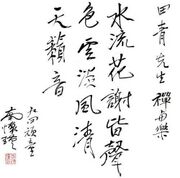 田青先生 禪曲樂
水流花謝皆聲
色雲淡風清
天籟音
南懷瑾